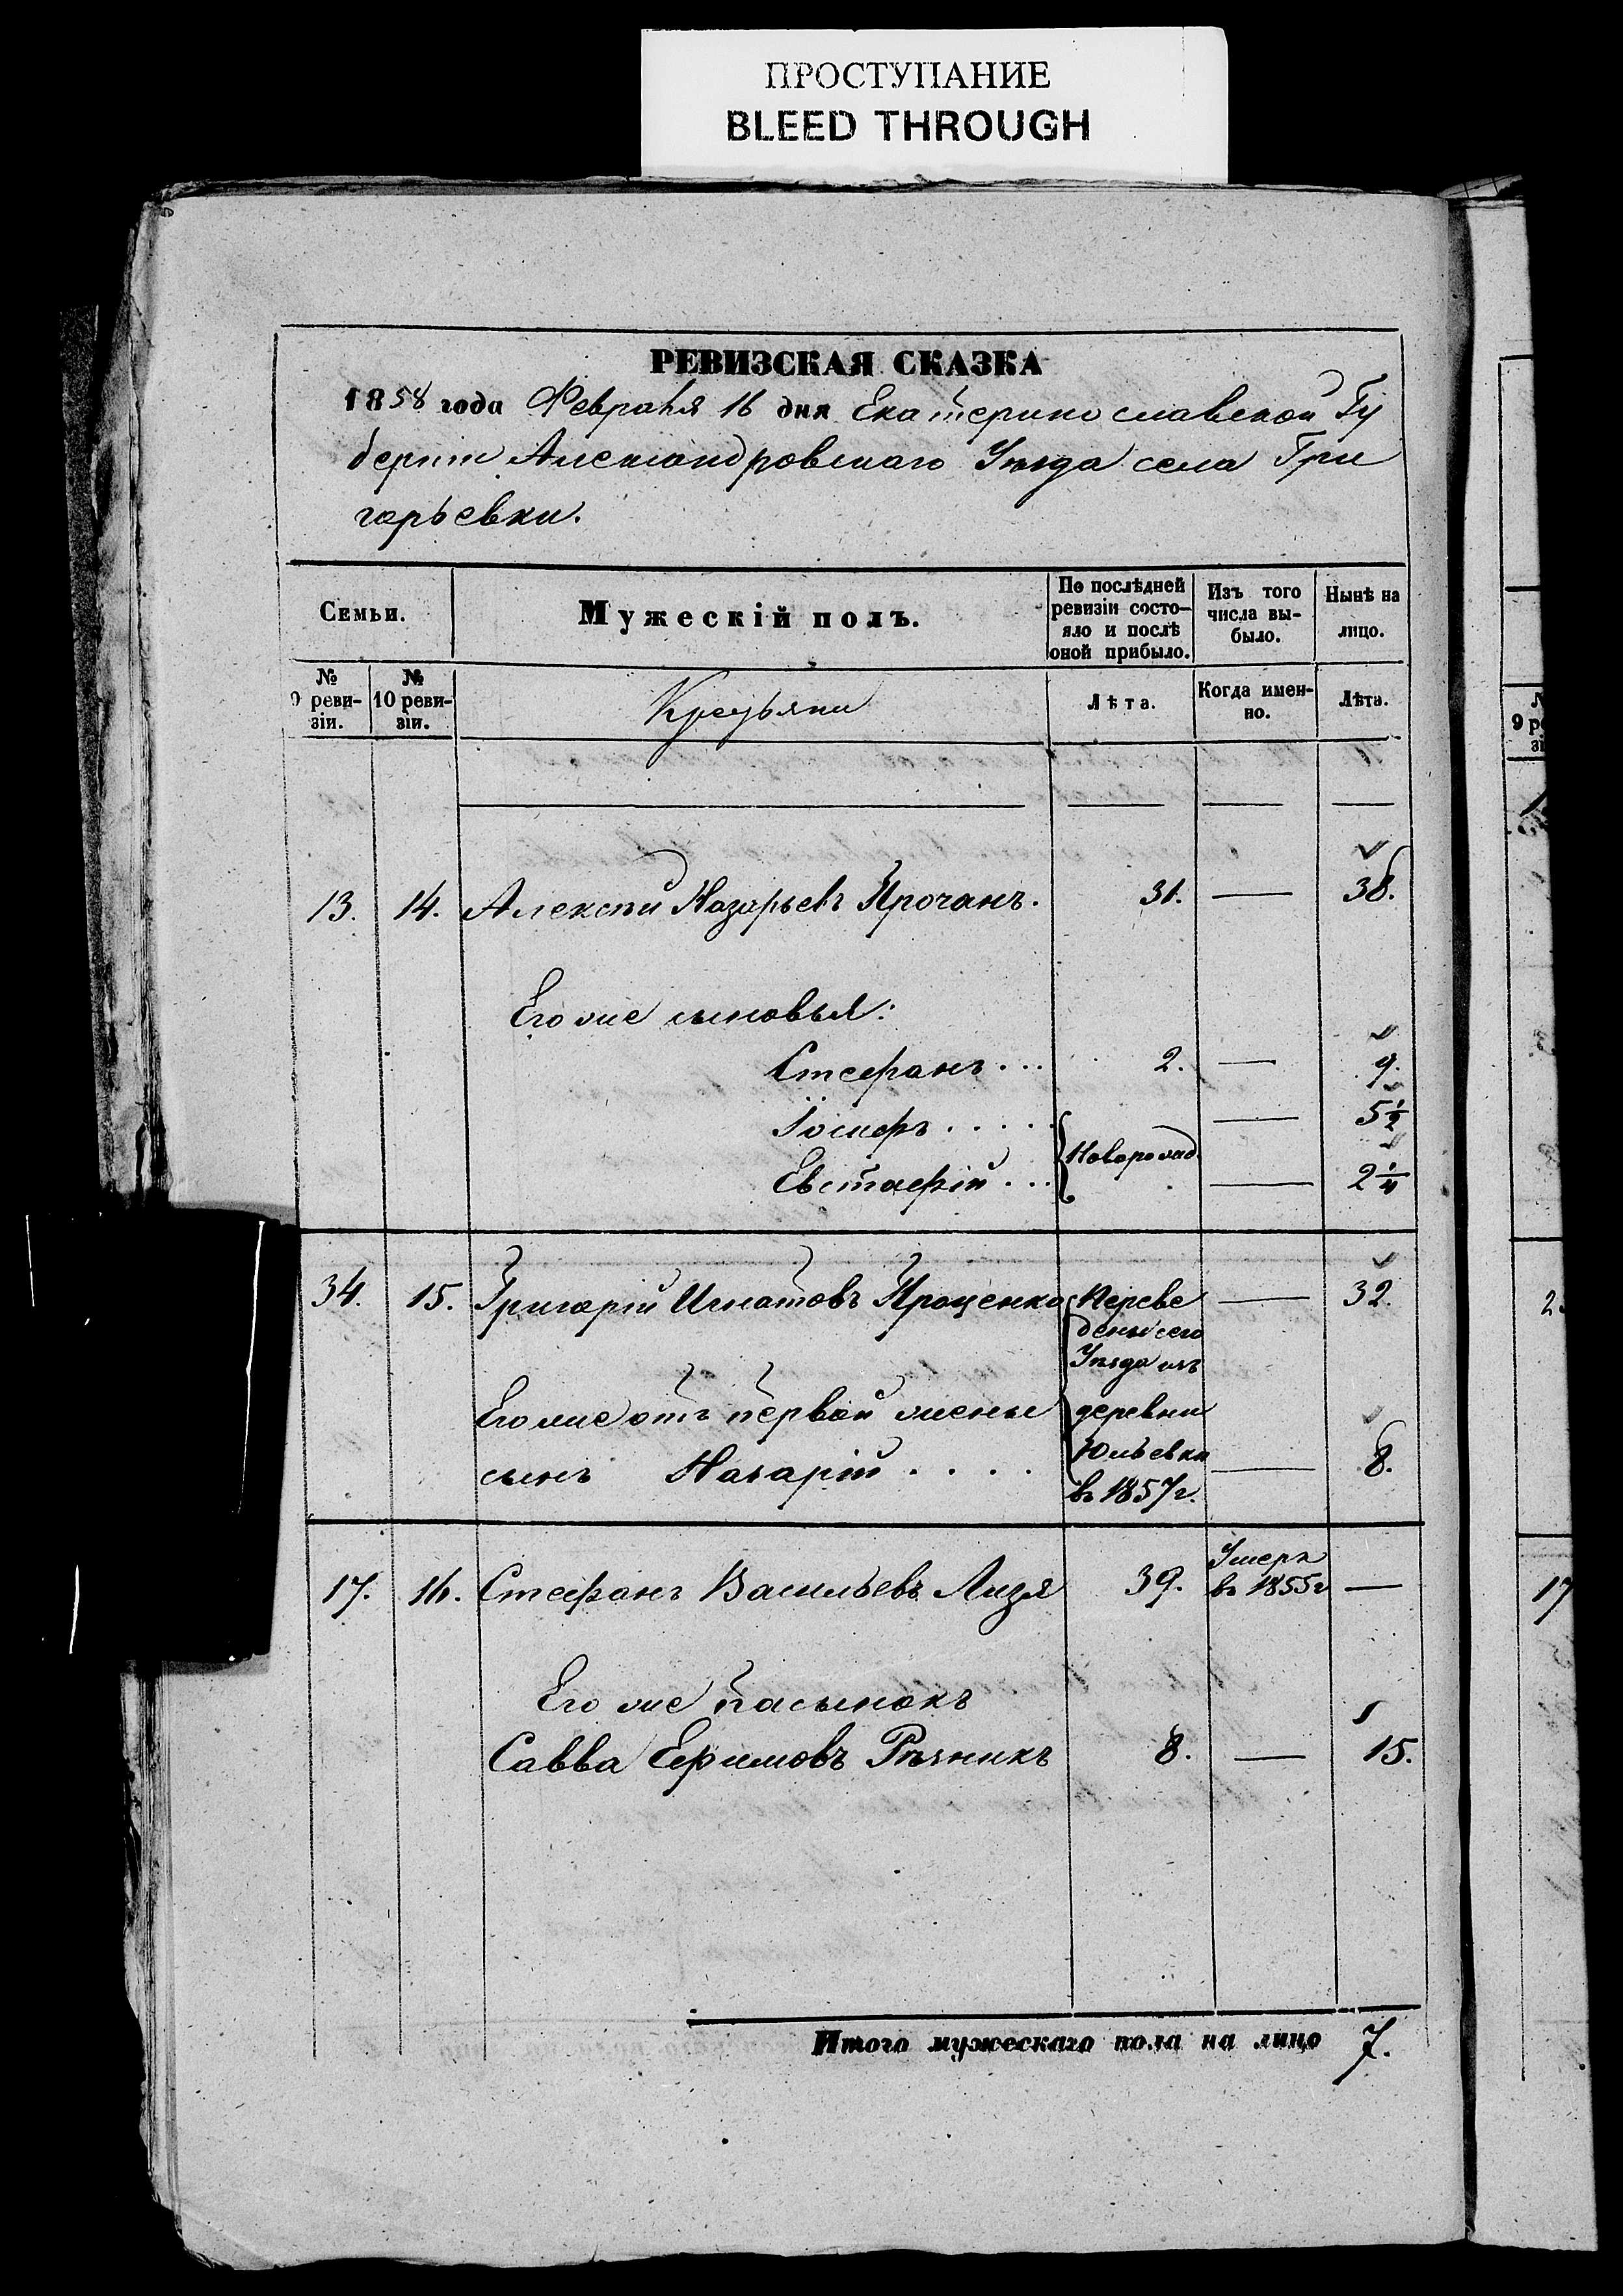 ПРОСТУПАНИЕ
BLEED THROUGH
РЕВИЗСКАЯ СКАЗКА
1858 года Февраля 16 дня Екатеринославской Гу
берніи Александровскаго Уѣзда села Гри
горьевки.
Семьи.
Мужескій полъ.
По послѣдней
ревизіи состо-
яло и послѣ
оной прибыло.
Изъ того
числа вы-
было.
Нынѣ на
лицо.
№
9 реви-
зіи.
№
10 реви-
зіи.
Лѣта.
Когда имен-
но.
Лѣта.
13. 14. Алексѣй Назарьевъ Прочанъ. 31. — 38.
Его же сыновья:
Стефанъ... 2. — 9.
Іосифъ..... — 5½
Новорожд
Евстафій... — 2¼
34. 15. Григорій Игнатовъ Проценко Переве — 32.
дены сего
Уѣзда изъ
Его же отъ первой жены деревни
сынъ Назарій.... Юльевки — 8.
въ 1857г.
17. 16. Стефанъ Васильевъ Лизя 39. Умеръ
въ 1855г —
Его же пасынокъ
Савва Ефимовъ Рѣзникъ 8. — 15.
Итого мужескаго пола на лицо 7.
9 ре
зі
17